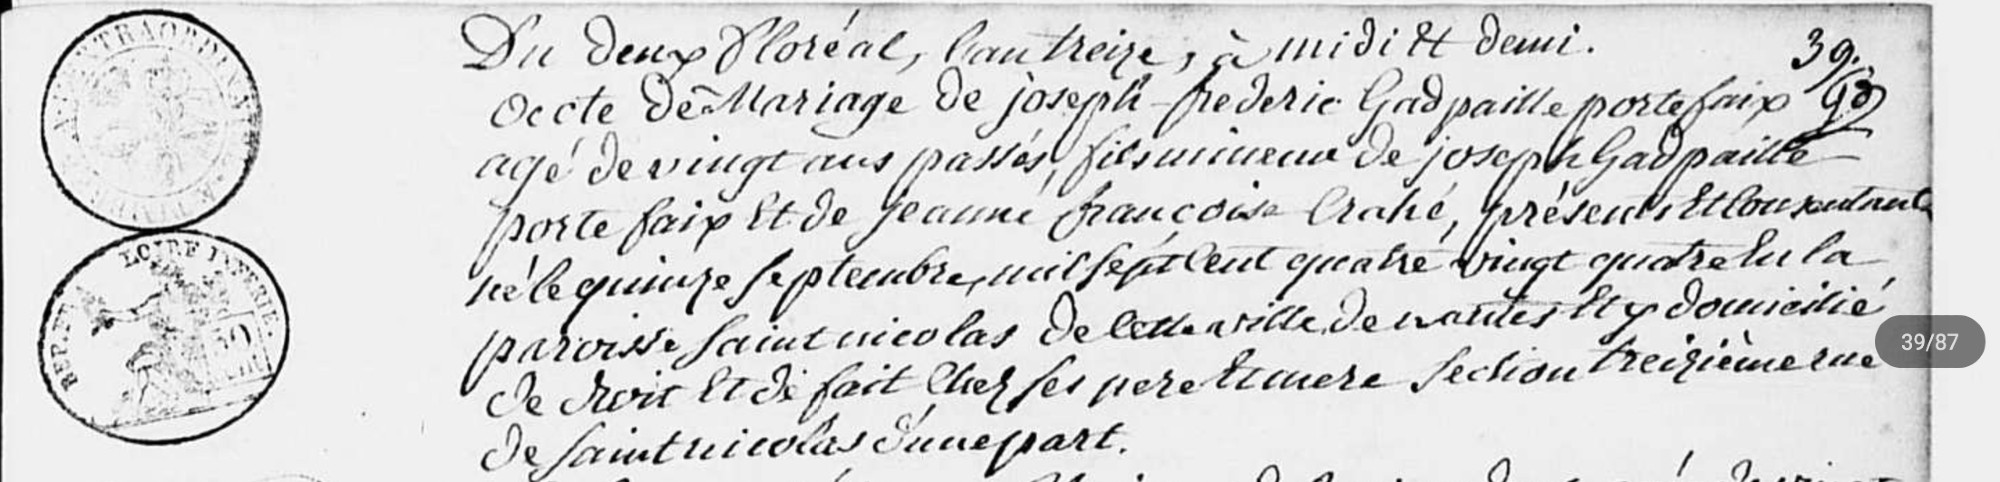 TRAORD
ECIRE IMPERIE.
REP. FRA
39.
Du deux floréal, l'an treize, à midi Et demi.
Acte de Mariage de joseph-frederic Gadpaille portefaix
agé de vingt ans passés, fils mineur de joseph Gadpaille
porte faix Et de jeanne françoise Crahé, présents Et Consentants
né le quinze septembre, mil sept Cent quatre vingt quatre En la
paroisse saint nicolas de Cette ville de nantes Et y domicilié
de droit Et de fait Chez ses pere Et mere section treizième rue
de saint nicolas d'une part.
39/87